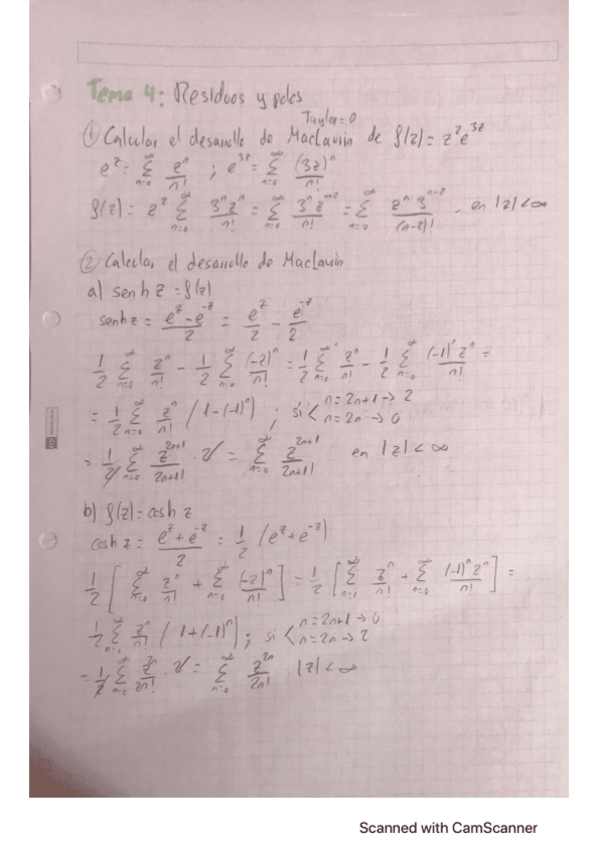 Tema 4: Residuos y polos
Taylor=0
① Calcular el desarrollo de MacLaurin de f(z) = z²e^{3z}
e^z = ∑_{n=0}^∞ z^n/n! ; e^{3z} = ∑_{n=0}^∞ (3z)^n/n!
f(z) = z² ∑_{n=0}^∞ 3^n z^n/n! = ∑_{n=0}^∞ 3^n z^{n+2}/n! = ∑_{n=2}^∞ z^n 3^{n-2}/(n-2)! en |z|<∞
② Calcular el desarrollo de MacLaurin
a) senh z = f(z)
senh z = (e^z - e^{-z})/2 = e^z/2 - e^{-z}/2
1/2 ∑_{n=0}^∞ z^n/n! - 1/2 ∑_{n=0}^∞ (-z)^n/n! = 1/2 ∑_{n=0}^∞ z^n/n! - 1/2 ∑_{n=0}^∞ (-1)^n z^n/n! =
= 1/2 ∑_{n=0}^∞ z^n/n! (1-(-1)^n) ; si < n=2n+1 → 2
n=2n → 0
= 1/2 ∑_{n=0}^∞ z^{2n+1}/2n+1! · 2 = ∑_{n=0}^∞ z^{2n+1}/2n+1! en |z|<∞
b) f(z) = cosh z
cosh z = (e^z + e^{-z})/2 = 1/2 (e^z + e^{-z})
1/2 [∑_{n=0}^∞ z^n/n! + ∑_{n=0}^∞ (-z)^n/n!] = 1/2 [∑_{n=0}^∞ z^n/n! + ∑_{n=0}^∞ (-1)^n z^n/n!] =
1/2 ∑_{n=0}^∞ z^n/n! (1+(-1)^n) ; si < n=2n+1 → 0
n=2n → 2
= 1/2 ∑_{n=0}^∞ z^{2n}/2n! · 2 = ∑_{n=0}^∞ z^{2n}/2n! |z|<∞
Scanned with CamScanner